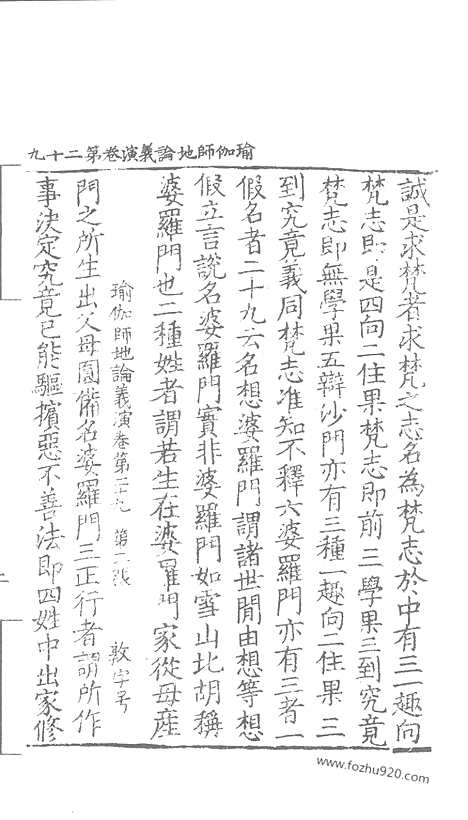 瑜伽師地論義演卷第二十九
誠是求梵者求梵之志名為梵志於中有三一趣向
梵志即是四向二住果梵志即前三學果三到究竟
梵志即無學果五辯沙門亦有三種一趣向二住果三
到究竟義同梵志准知不釋六婆羅門亦有三者一
假名者二十九云名想婆羅門謂諸世間由想等想
假立言說名婆羅門實非婆羅門如雪山比胡稱
婆羅門也二種姓者謂若生在婆羅門家從母產
瑜伽師地論義演卷第二十九 第二張 敦字号
門之所生出父母圓備名婆羅門三正行者謂所作
事決定究竟已能驅擯惡不善法即四姓中出家修
www.fozhu920.com